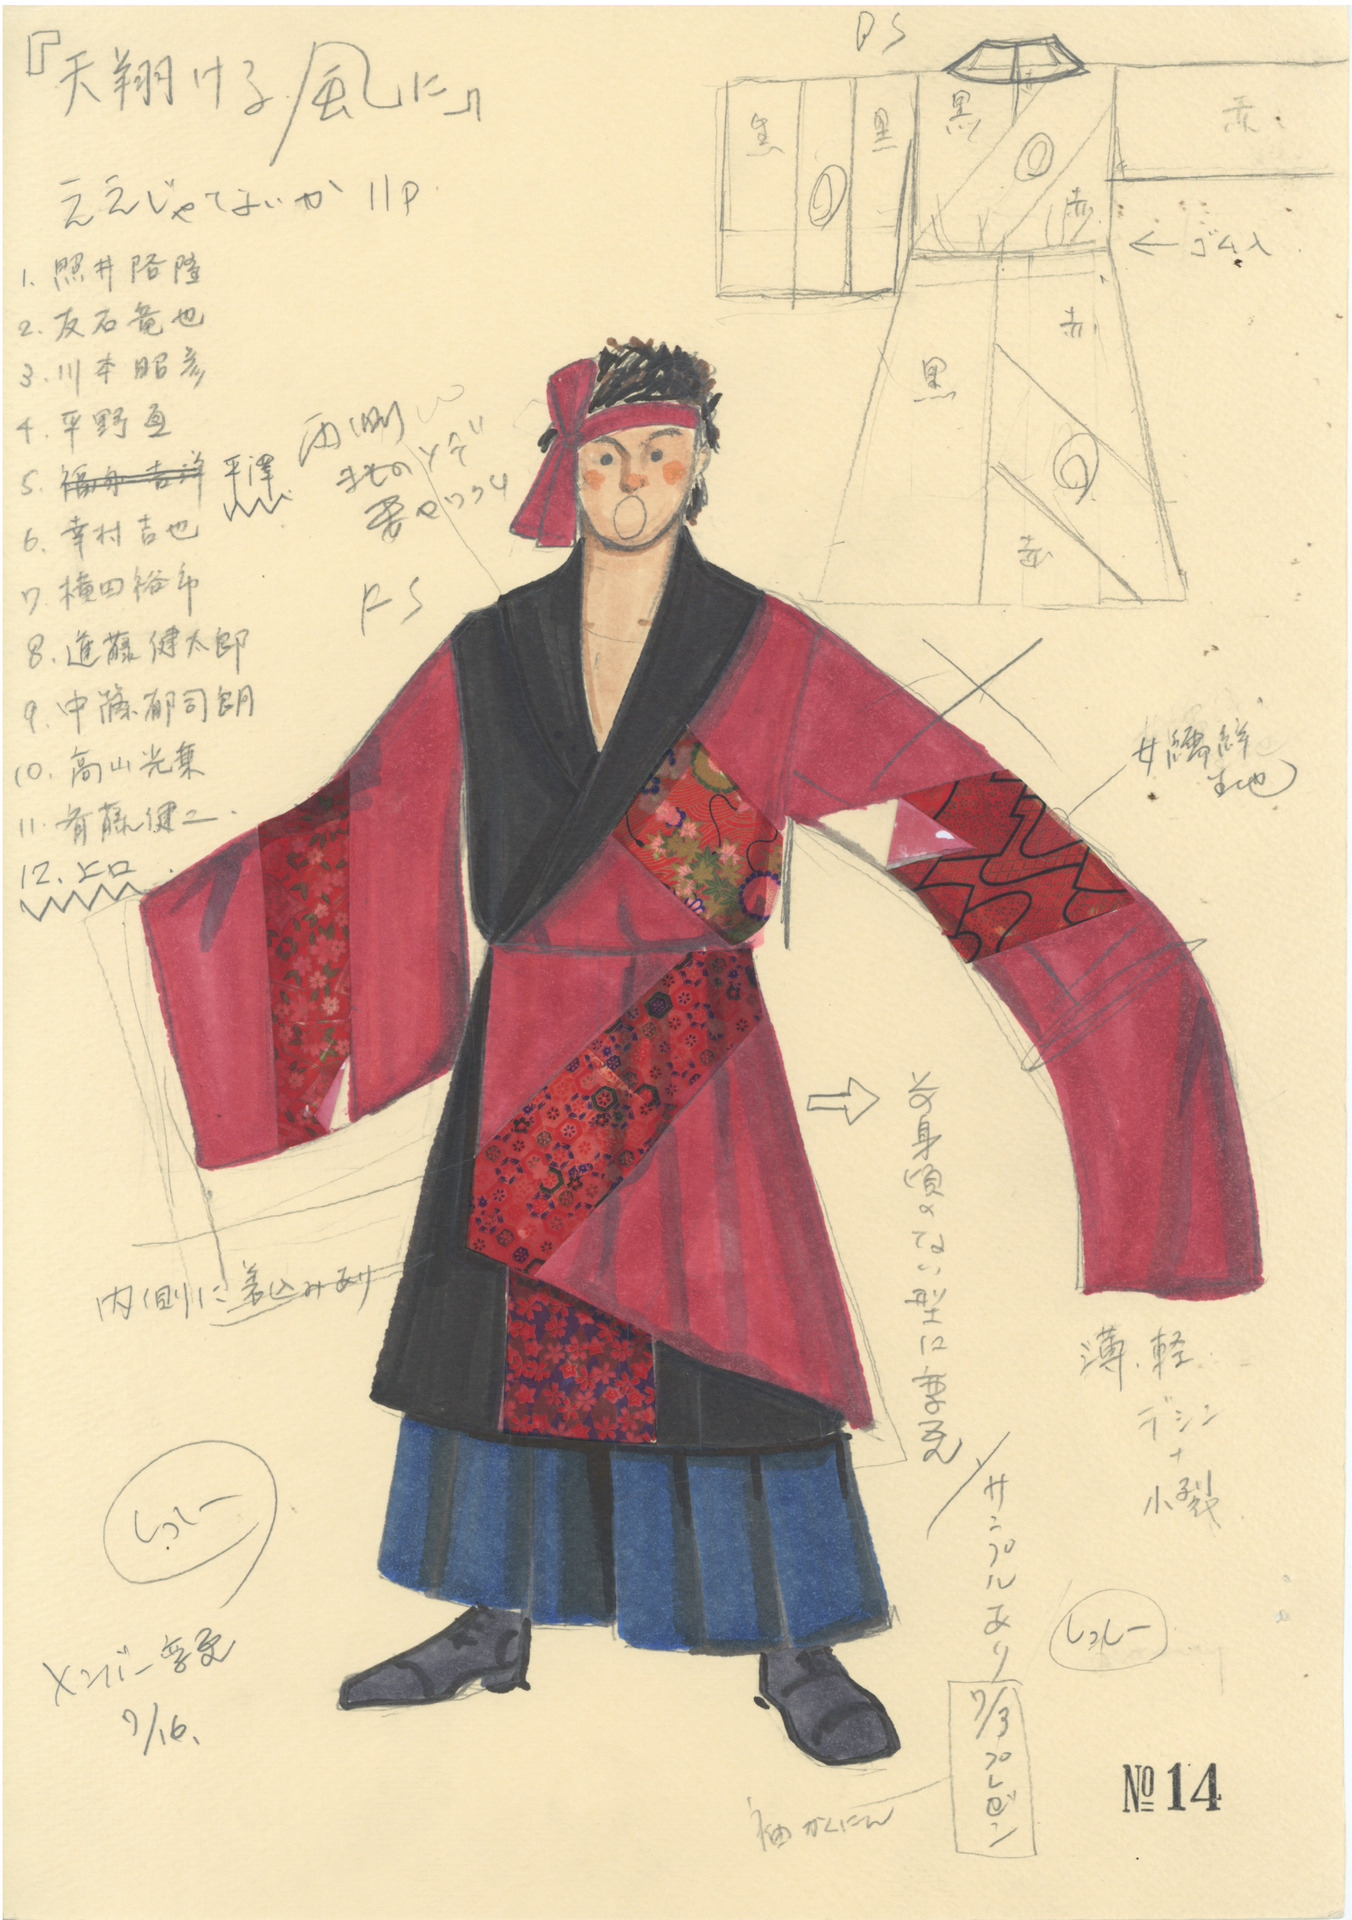 『天翔ける風に』
ええじゃないか 11P.
1. 照井裕隆
2. 友石竜也
3. 川本昭彦
4. 平野亙
5. 福永吉洋 平澤
6. 幸村吉也
7. 横田裕市
8. 進藤健太郎
9. 中條郁司朗
10. 高山光乗
11. 斉藤健二.
12. ヒロ
両側
きもの
FS
BS
黒
黒
黒
赤
赤
← ゴム入
黒
赤
赤
女襦袢
生地
後身頃のない型に変更
内側に差込みあり
薄、軽
デシン
+
小裂
サンプルあり
7/3 プレゼン
袖かくにん
しっしー
しっしー
メンバー変更
7/16.
№14